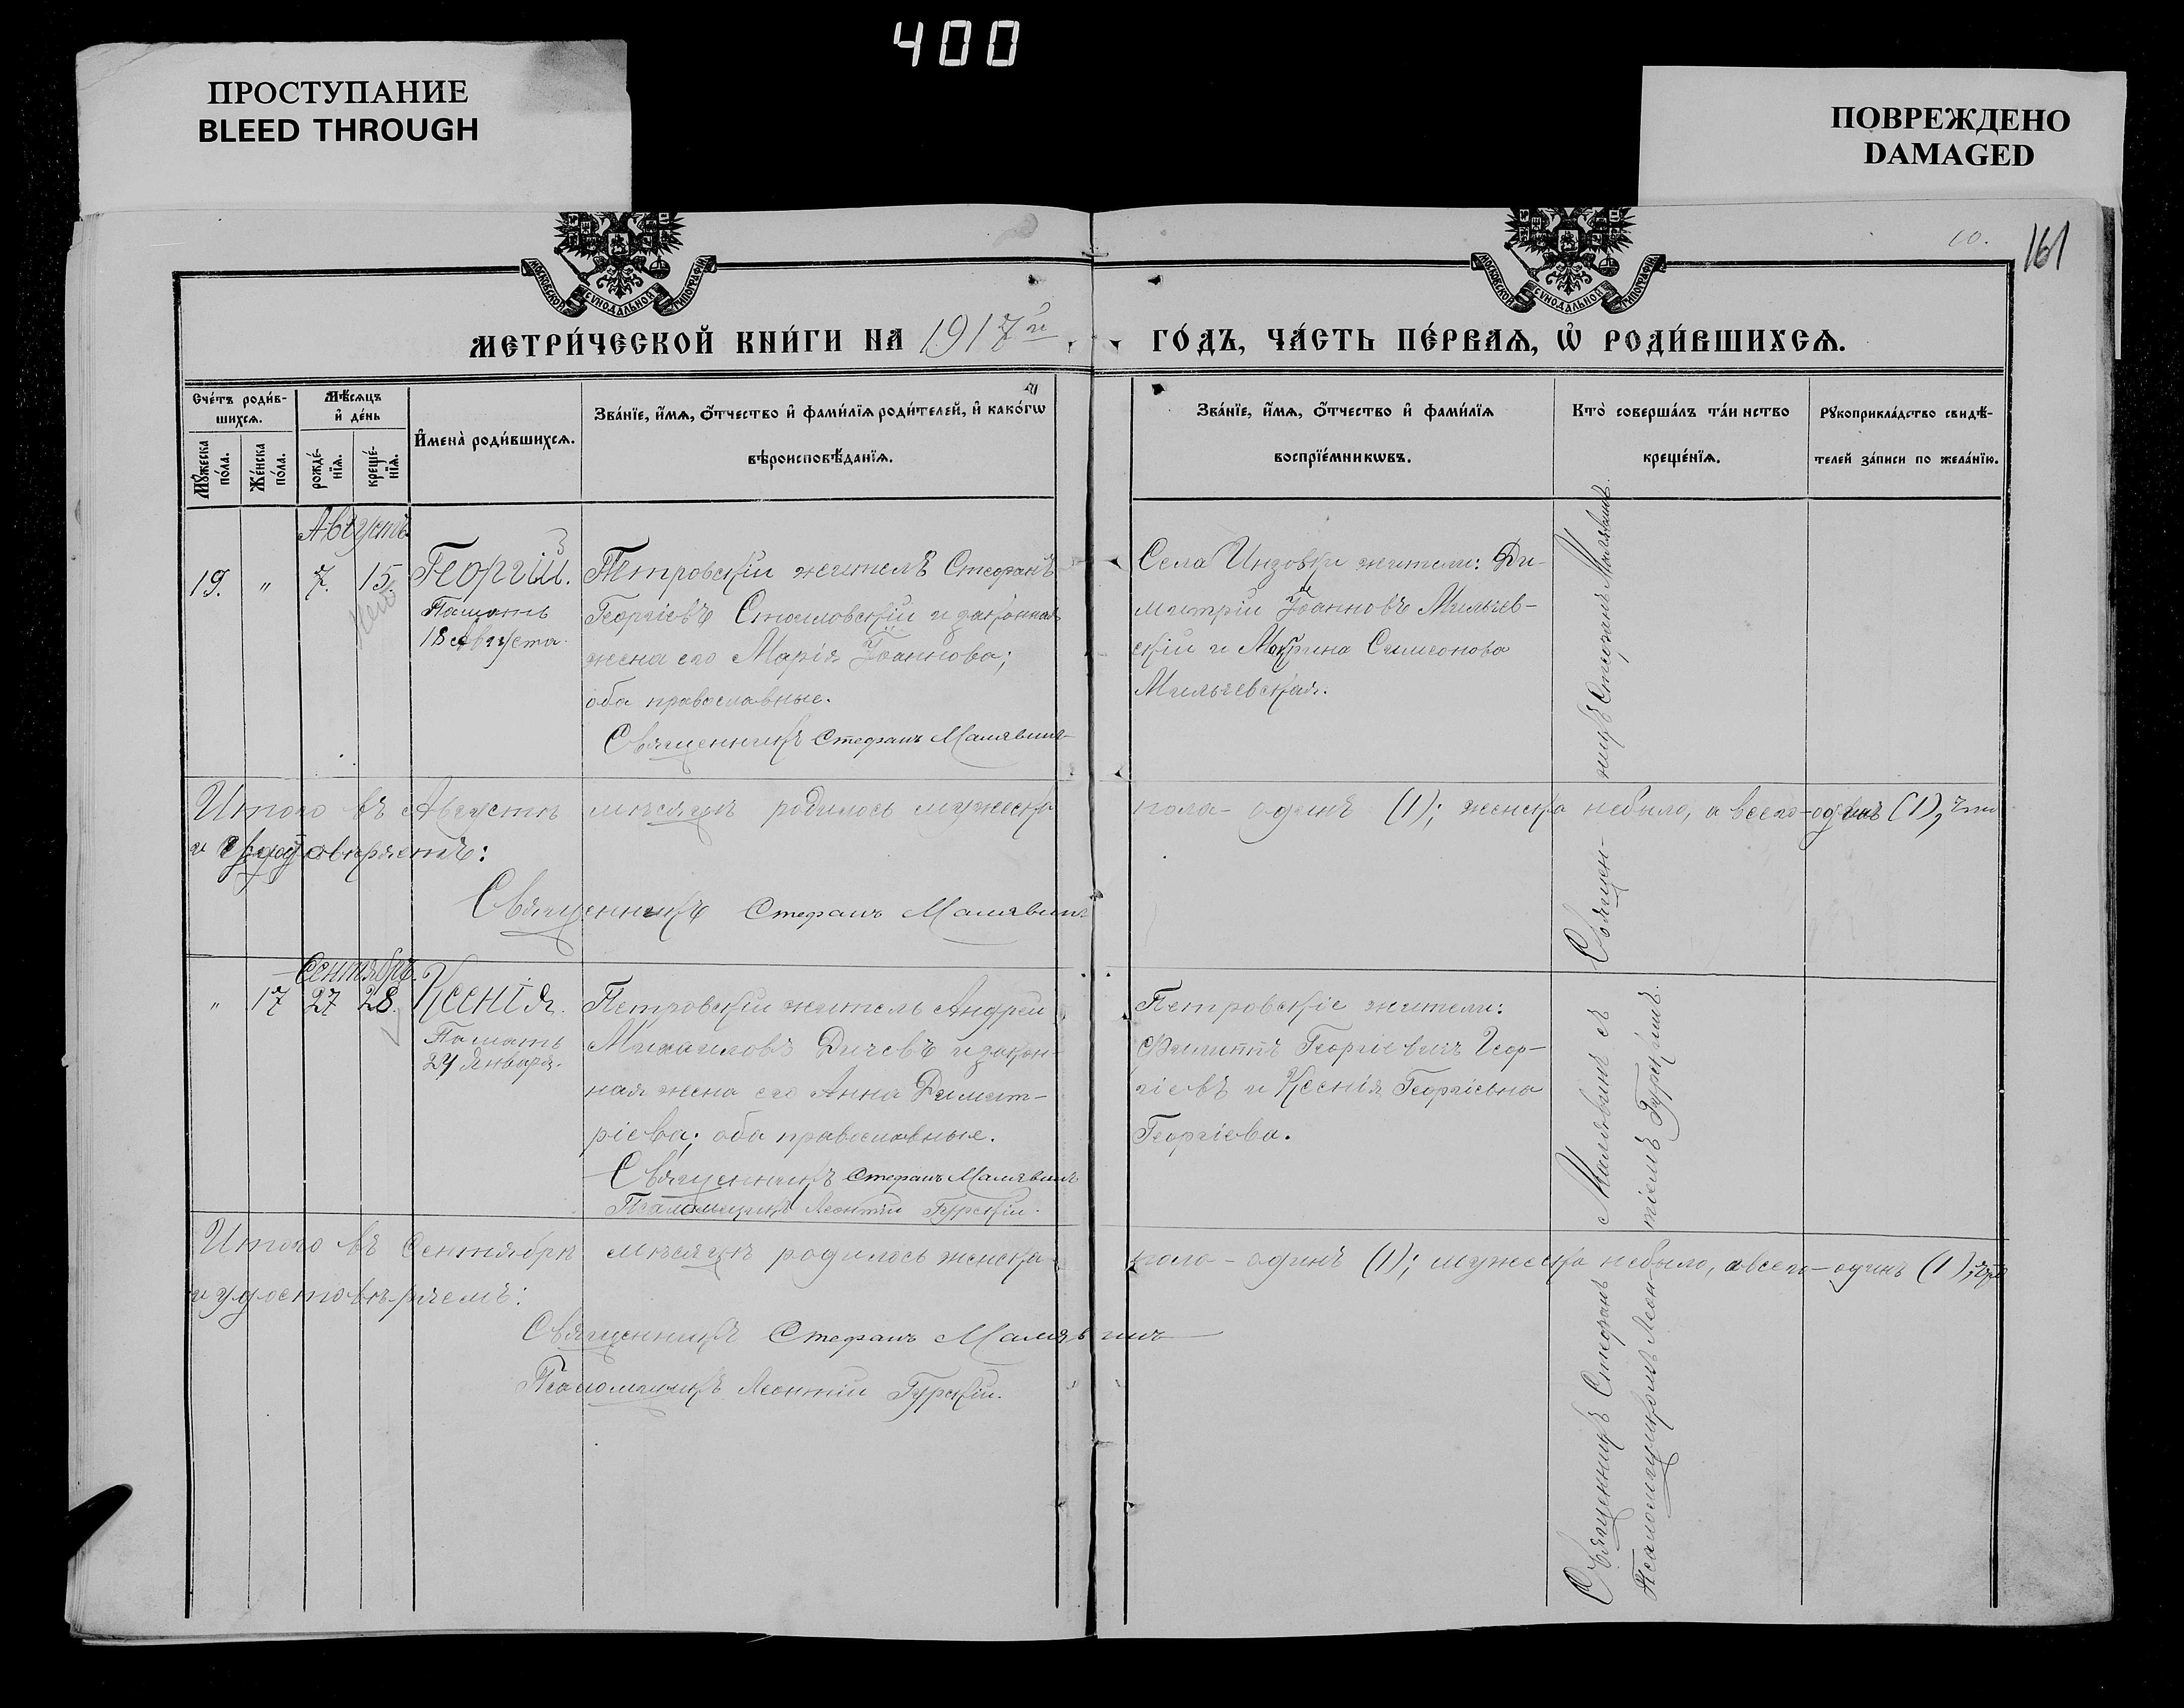 400
ПРОСТУПАНИЕ
BLEED THROUGH
ПОВРЕЖДЕНО
DAMAGED
МОСКОВСКОЙ СѴНОДАЛЬНОЙ ТИПОГРАФІИ
МОСКОВСКОЙ СѴНОДАЛЬНОЙ ТИПОГРАФІИ
10.
161
МЕТРИ́ЧЕСКОЙ КНИ́ГИ НА 1917й
ГО́ДЪ, ЧА́СТЬ ПЕ́РВАѦ, Ѡ҆ РОДИ́ВШИХСѦ.
Сче́тъ роди́в-
шихсѧ.
Мꙋ́жеска
по́ла.
Же́нска
по́ла.
Мѣ́сѧцъ
и҆ де́нь
рожде́-
нїѧ.
креще́-
нїѧ.
И҆мена̀ роди́вшихсѧ.
Зва́нїе, и҆́мѧ, ѻ҆́тчество и҆ фами́лїѧ роди́телей, и҆ како́гѡ
вѣроисповѣ́данїѧ.
Зва́нїе, и҆́мѧ, ѻ҆́тчество и҆ фами́лїѧ
воспрїе́мникѡвъ.
Кто̀ соверша́лъ та́инство
креще́нїѧ.
Рꙋкоприкла́дство свидѣ́-
телей за́писи по жела́нїю.
Августъ
19. " 7. 15. Георгій.
Память
18 августа.
Петровскій житель Стефанъ
Георгіевъ Стоиловскій и законная
жена его Марія Іоаннова;
оба православные.
Священникъ Стефанъ Малявинъ
Села Инзовки жители: Ди-
митрій Іоанновъ Мильчев-
скій и Марина Симеонова
Мильчевская.
Священ-никъ Стефанъ Малявинъ.
Итого въ Августѣ мѣсяцѣ родилось мужеска пола - одинъ (1); женска небыло, а всего - одинъ (1), что
и удостовѣряетъ:
Священникъ Стефанъ Малявинъ
Сентябрь.
" 17 27 28. Ксенія.
Память
24 Января.
Петровскій житель Андрей
Михаиловъ Дичевъ и закон-
ная жена его Анна Димит-
ріева; оба православные.
Священникъ Стефанъ Малявинъ
Псаломщикъ Леонтій Гурскій.
Петровскіе жители:
Филиппъ Георгіевичъ Геор-
гіевъ и Ксенія Георгіевна
Георгіева.
Священникъ Стефанъ Малявинъ съ
Псаломщикомъ Леон-тіемъ Гурскимъ.
Итого въ Сентябрѣ мѣсяцѣ родилось женска пола - одинъ (1); мужеска небыло, а всего - одинъ (1), что
и удостовѣряемъ:
Священникъ Стефанъ Малявинъ
Псаломщикъ Леонтій Гурскій.